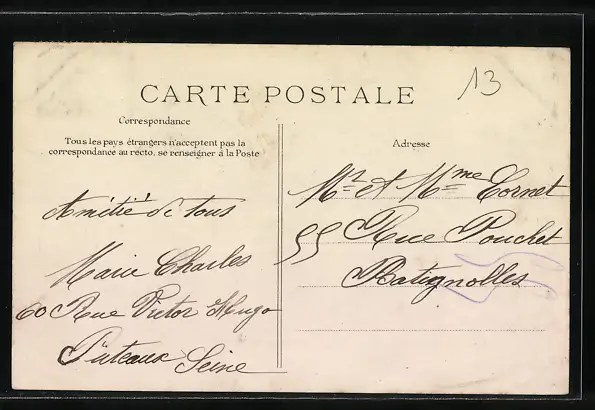 CARTE POSTALE
13
Correspondance
Tous les pays étrangers n'acceptent pas la
correspondance au recto. se renseigner à la Poste
Amitié à tous
Marie Charles
60 Rue Victor Hugo
Puteaux Seine
Adresse
Mr et Mme Cornet
55 Rue Pouchet
Batignolles